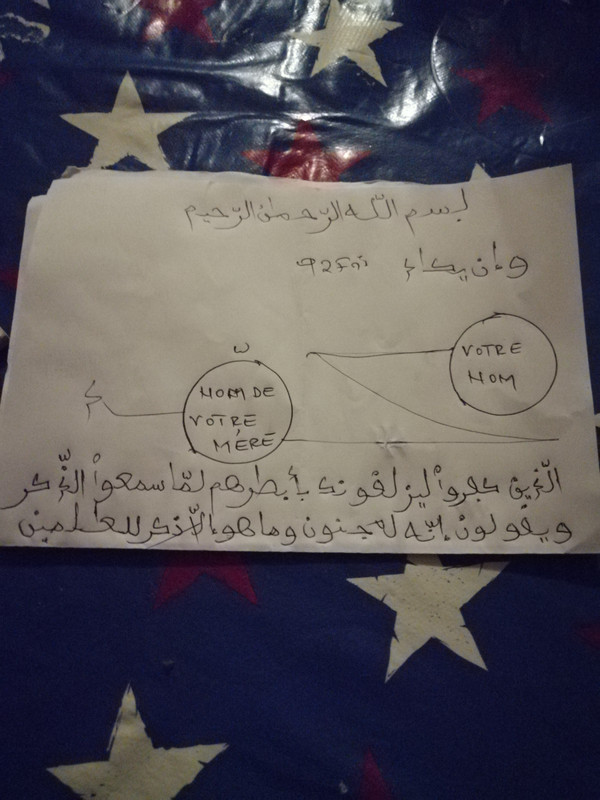 بسم اللّه الرّحمٰن الرّحيم
وإن يكاد
VOTRE
NOM
NOM DE
VOTRE
MÉRE
الّذين كفرواْ ليزلقونك بأبطرهم لمّا سمعواْ الذّكر
ويقولون إنّه لمجنون وما هو إلاّ ذكر للعٰلمين